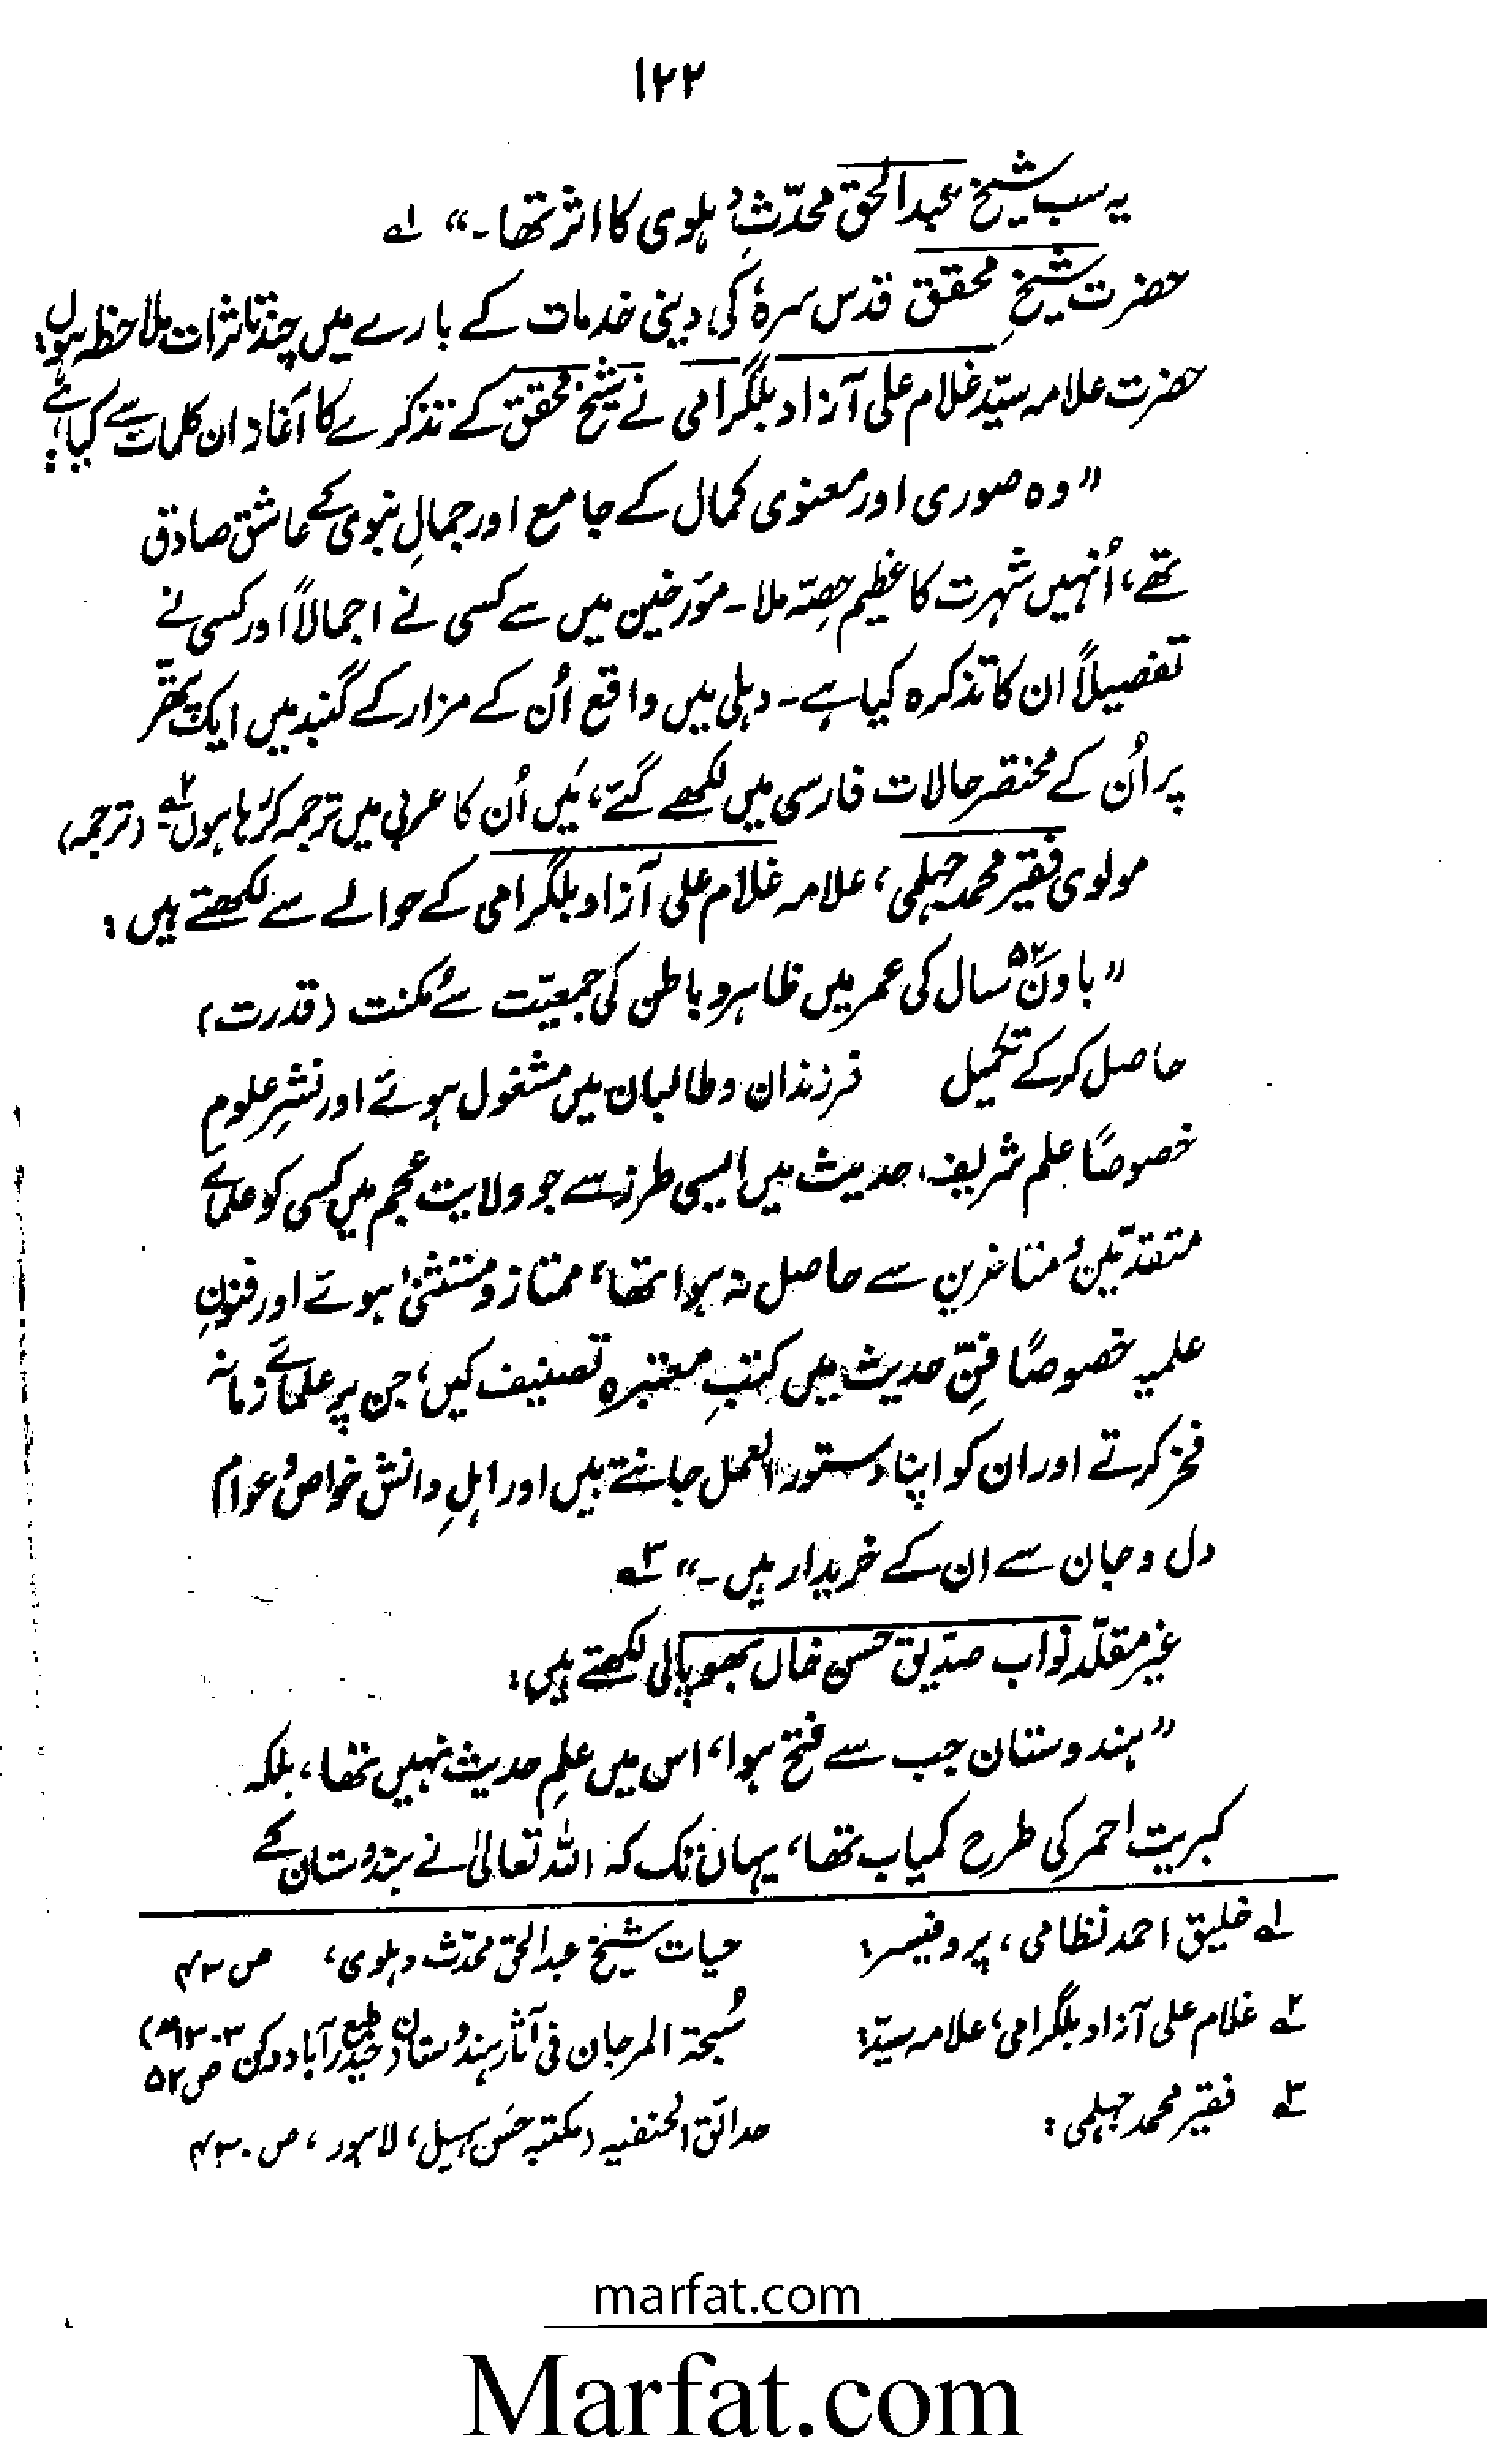 ۱۲۲
یہ سب شیخ عبدالحق محدّثِ دہلوی کا اثر تھا۔“ ۱ے
حضرت شیخِ محقق قدس سرہٗ کی دینی خدمات کے بارے میں چند تاثرات ملاحظہ ہوں:
حضرت علامہ سیّد غلام علی آزاد بلگرامی نے شیخ محقق کے تذکرے کا آغاز ان کلمات سے کیا ہے:
”وہ صوری اور معنوی کمال کے جامع اور جمالِ نبوی کے عاشق صادق
تھے، اُنہیں شہرت کا عظیم حصّہ ملا۔ مؤرخین میں سے کسی نے اجمالاً اور کسی نے
تفصیلاً ان کا تذکرہ کیا ہے۔ دہلی میں واقع اُن کے مزار کے گنبد میں ایک پتھر
پر اُن کے مختصر حالات فارسی میں لکھے گئے، میں اُن کا عربی میں ترجمہ کر رہا ہوں ۲ے (ترجمہ)
مولوی فقیر محمد جہلمی، علامہ غلام علی آزاد بلگرامی کے حوالے سے لکھتے ہیں:
”باون ۵۲ سال کی عمر میں ظاہر و باطن کی جمعیّت سے مُکنت (قدرت)
حاصل کر کے تکمیل فرزندان و طالبان میں مشغول ہوئے اور نشرِ علوم
خصوصًا علم شریف حدیث میں ایسی طرز سے جو ولایت عجم میں کسی کو علمائے
متقدّمین و متاخرین سے حاصل نہ ہوا تھا، ممتاز و مستثنیٰ ہوئے اور فنونِ
علمیہ خصوصًا فنِّ حدیث میں کتبِ معتبرہ تصنیف کیں، جن پر علمائے زمانہ
فخر کرتے اور ان کو اپنا دستور العمل جانتے ہیں اور اہلِ دانش خواص و عوام
دل و جان سے ان کے خریدار ہیں۔“ ۳ے
غیر مقلّد نواب صدّیق حسن خاں بھوپالی لکھتے ہیں:
”ہندوستان جب سے فتح ہوا، اس میں علمِ حدیث نہیں تھا، بلکہ
کبریت احمر کی طرح کمیاب تھا، یہاں تک کہ اللہ تعالیٰ نے ہندوستان کے
۱ے خلیق احمد نظامی، پروفیسر: حیات شیخ عبدالحق محدّث دہلوی، ص ۴۳
۲ے غلام علی آزاد بلگرامی، علامہ سیّد: سُبحۃ المرجان فی آثار ہندوستان (طبع حیدر آباد دکن ۱۳۰۳ھ) ص ۵۲
۳ے فقیر محمد جہلمی: حدائق الحنفیہ (مکتبہ حسن سہیل، لاہور، ص ۴۳۰
marfat.com
Marfat.com